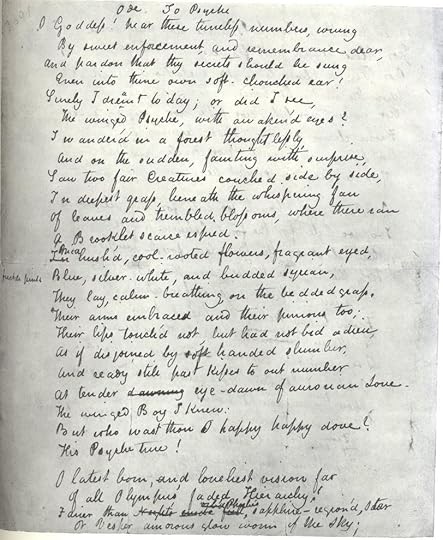 Ode To Psyche
O Goddess! hear these tuneless numbers, wrung
By sweet enforcement, and remembrance dear,
And pardon that thy secrets should be sung
Even into thine own soft-chonched ear!
Surely I dreamt to'day; or did I see,
The winged Psyche, with awaken'd eyes?
I wander'd in a forest thoughtlessly,
And on the sudden, fainting with surprise,
Saw two fair Creatures couched side by side,
In deepest grass, beneath the whispring fan
Of leaves and trembled blossoms, where there ran
A Brooklet scarce espied.
'Mid hush'd, cool-rooted flowers, fragrant eyed,
Blue, silver-white, and budded syrean,
They lay, calm-breathing on the bedded grass.
Their arms embraced and their pinions too;
Their lips touch'd not, but had not bid adieu,
As if disjoined by soft handed slumber,
And ready still past kisses to out number
At tender dawning eye-dawn of aurorian Love.
The winged Boy I knew:
But who wast thou O happy happy dove?
His Psyche true!
O latest born, and loveliest vision far
Of all Olympus faded Hierarchy!
Fairer than Phoebe's sapphire-region'd star
Or Vesper amorous glow worm of the sky;